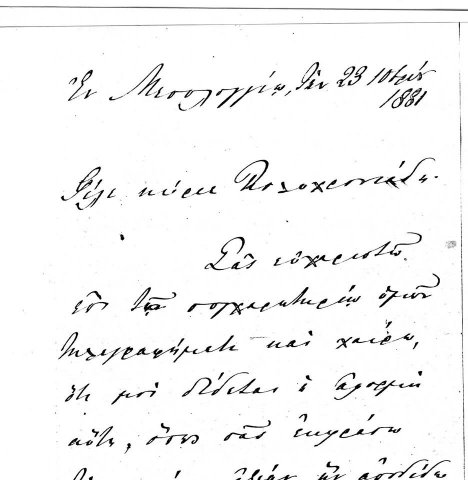 Ἐν Μεσολογγίῳ, τὴν 23 10βρίου
1881
Φίλε κύριε Πολυχρονιάδη.
Σᾶς εὐχαριστῶ
ἐπὶ τῷ συγχαρητηρίῳ ὑμῶν
τηλεγραφήματι καὶ χαίρω,
ὅτι μοὶ δίδεται ἡ ἀφορμὴ
αὕτη, ὅπως σᾶς ἐκφράσω